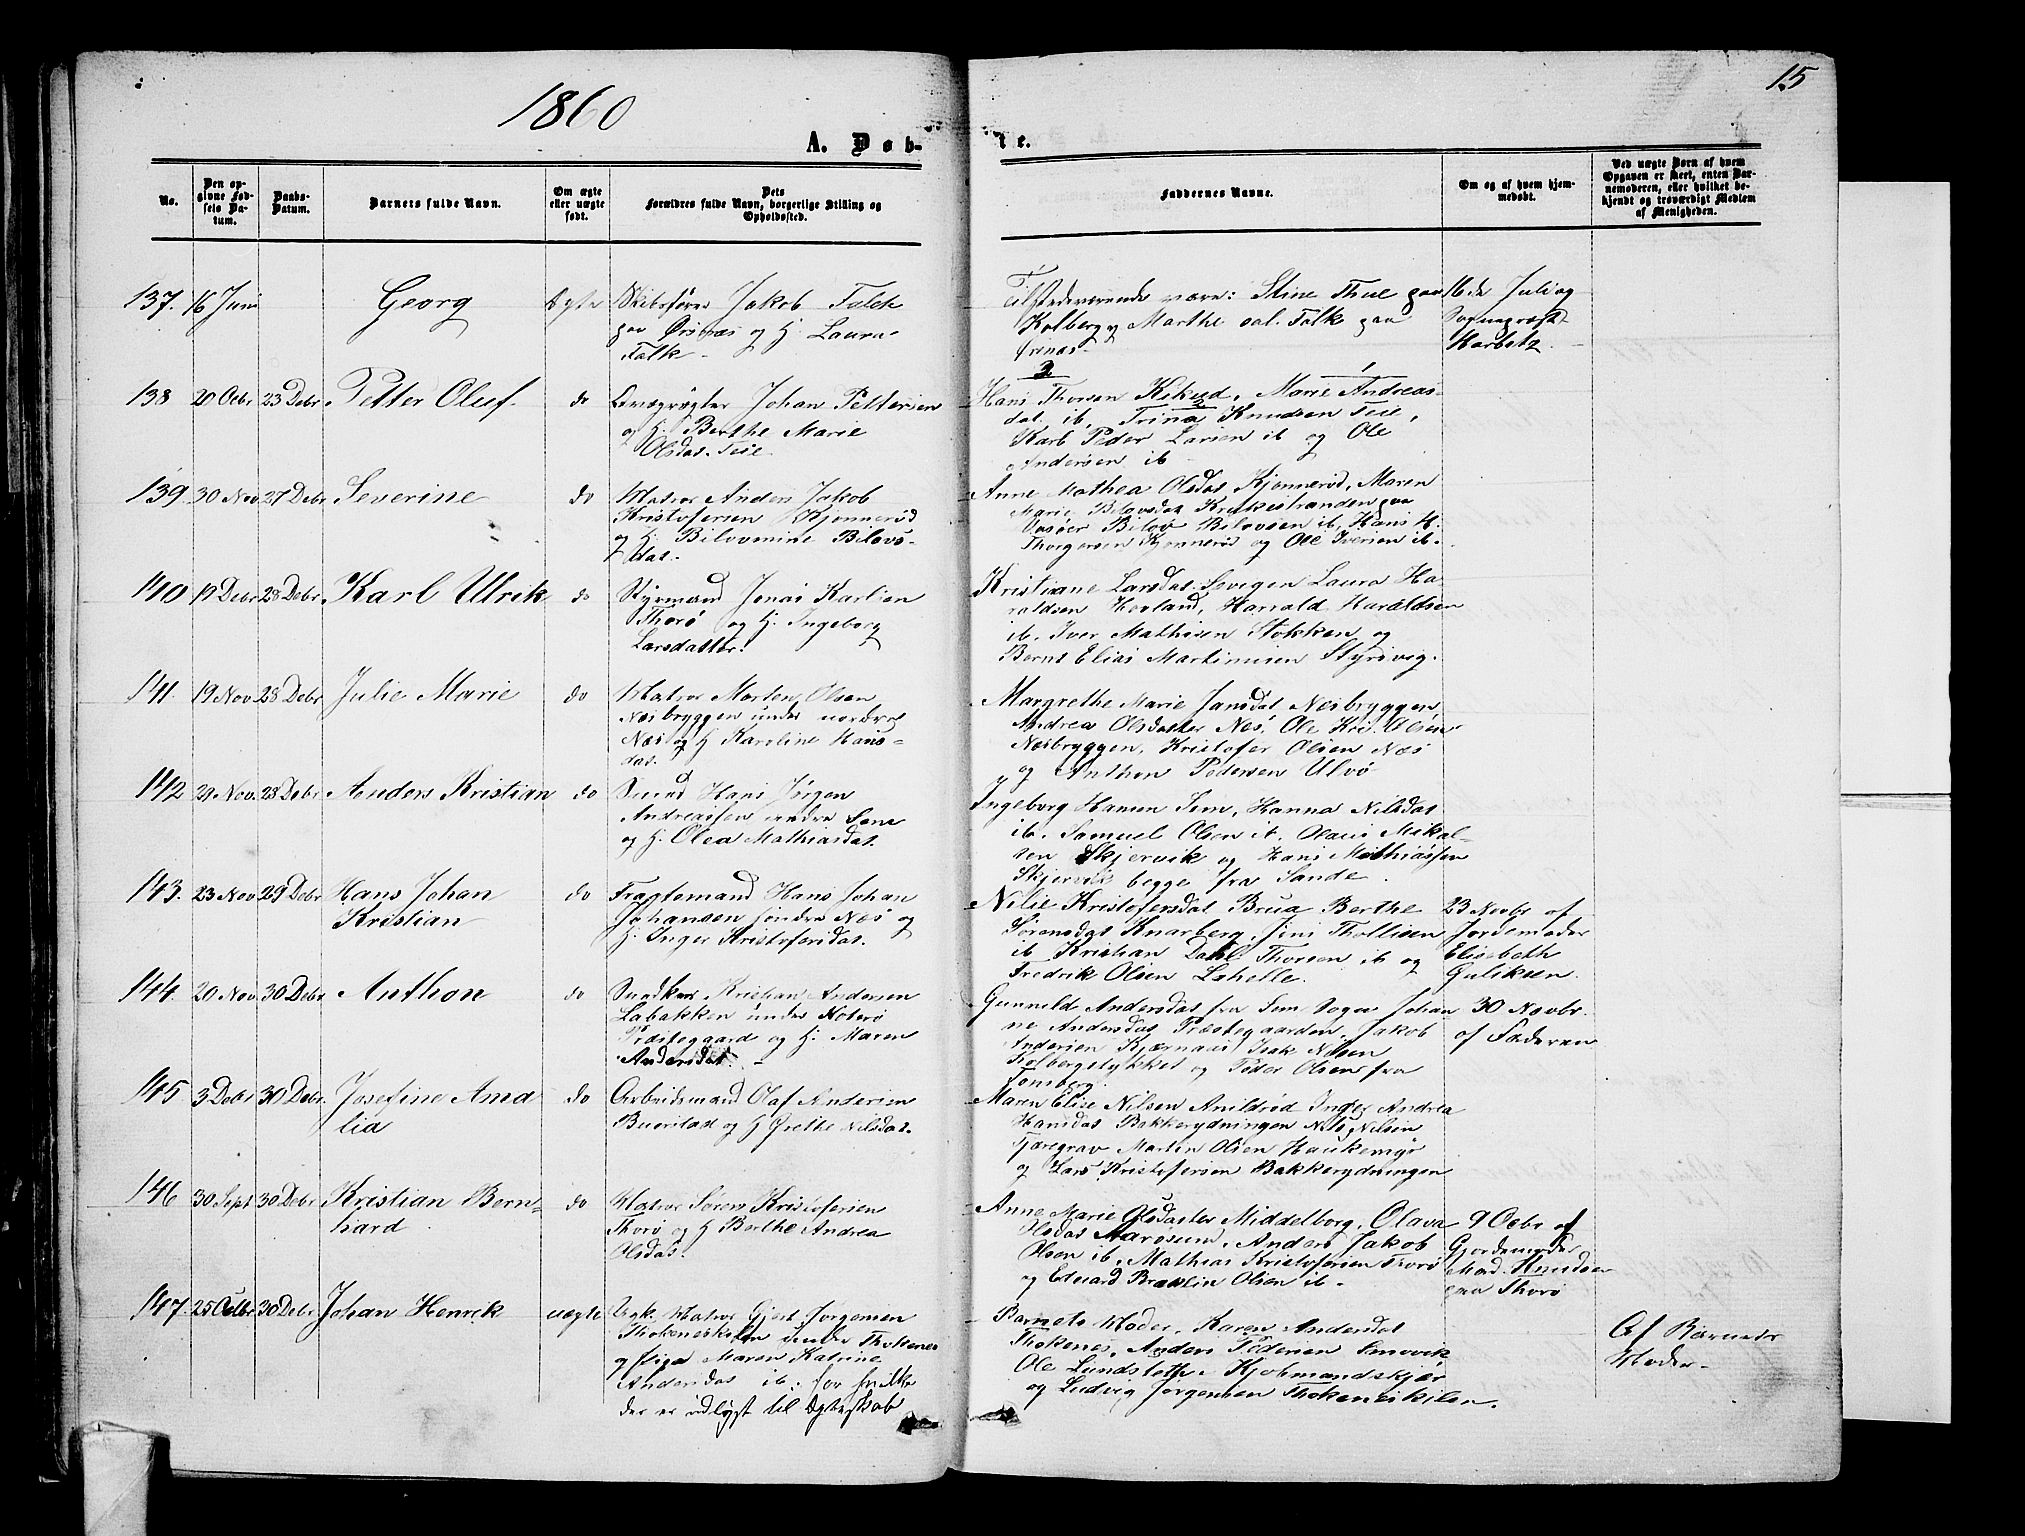 15
1860
A. Døb-
te.
No.
Den op-
givne Fød-
sels Da-
tum.
Daabs-
Datum.
Barnets fulde Navn.
Om ægte
eller uægte
født.
Dets
Forældres fulde Navn, borgerlige Stilling og
Opholdssted.
Faddernes Navne.
Om og af hvem hjem-
medøbt.
Ved uægte Børn af hvem
Opgaven er skeet, enten Bar-
nemoderen, eller hvilket be-
kjendt og troværdigt Medlem
af Menigheden.
137. 16 Juni Georg Ægte
Skibsfører Jakob Falck
paa Ørsnæs og H. Laura
Falk
Tilstedeværende være: Stine Thue paa
Kolberg og Marthe sal. Falk paa
16de Juli og
Sognepræst
Harbitz.
138 20 Ocbr 23 Debr Petter Oluf do
Johan Pettersen
og H. Berthe Marie
Olsdat. Teie
Hans Thorsen Marie Andreas-
dat. ib. Trina Knudsen Teie,
Karl Peder Larsen ib og Ole
Andersen ib
139. 30 Nov 27 Debr Severine do
Matros Anders Jakob
Kristofersen Kjønnerød
og H. Bilovmine Bilovs-
dat.
Anne Mathea Olsdat Kjønnerød, Maren
Marie Bilovsdat Krukestranden paa
Vasøer Bilov Bilovsen ib, Hans H.
Thorgersen Kjønnerød og Ole Iversen ib.
140 19 Debr 28 Debr. Karl Ulrik do
Styrmand Jonas Karlsen
Thorø og H. Ingeborg
Larsdatter.
Kristiane Larsdat. Laura Ha
raldsen Hovland, Harrald Haraldsen
ib. Iver Mathisen Stokken og
Bernt Elias Martinusen
141. 19 Nov 28 Debr Julie Marie do
Matros Morten Olsen
Næsbryggen under nordre
Næs og H Karoline Hans-
dat.
Margrethe Marie Jansdat Næsbryggen
Andrea Olsdatter Næs, Ole Kri. Olsen
Næsbryggen, Kristofer Olsen Næs
og Anthon Pedersen Ulvø
142 29 Nov. 28 Debr Anders Kristian do
Smed Hans Jørgen
Andreassen
og H. Olea Mathiasdat.
Ingeborg Hansen Sem, Hanna Nilsdat
ib. Samuel Olsen ib. Olaus Mikal-
sen Skjervik og Hans Mathiassen
Skjervik begge fra Sande.
143. 23 Nov 29 Debr Hans Johan
Kristian do
Fragtemand Hans Johan
Johansen søndre Næs og
H. Inger Kristofersdat.
Nilie Kristofersdat Brua Berthe
Sørensdat Knarberg, Jens Thollisen
ib Kristian Dahl Thorsen ib og
Fredrik Olsen Lahelle.
23 Novbr af
Jordemoder
Elisabeth
Guliksen.
144. 20 Nov. 30 Debr Anthon do
Kristian Andersen
Labakken under Nøterø
Præstegaard og H. Maren
Andersdat. -
Gunnild Andersdat fra Sem Sogn Johan
ne Andersdat Præstegaarden, Jakob
Andersen Kjærnaas, Isak Nilsen
Kolbergstykket og Peder Olsen fra
Tønsberg.
30 Novbr.
af Faderen
145 3 Debr 30 Debr. Josefine Ama
lia do
Arbeidsmand Olaf Andersen
Buerstad og H Grethe Nilsdat.
Maren Elise Nilsen Arildrød Inger Andrea
Hansdat Bakkerydningen Nils Nilsen
Tjæregrav Martin Olsen Haukemyr
og Lars Kristofersen Bakkerydningen
146 30 Sept 30 Debr Kristian Bern-
hard do
Matros Søren Kristofersen
Thorø og H Berthe Andrea
Olsdat.
Anne Marie Olsdatter Middelborg, Olava
Olsdat Aarøsund, Anders Jakob
Olsen ib. Mathias Kristofersen Thorø
og Eduard Olsen ib -
9 Ocbr af
Gjordemoder
Mad. Knudsen
paa Thorø
147. 25 Octbr 30 Debr Johan Henrik uægte
Ugk. Matros Gjert Jørgensen
Thokeneskilen under Thokenes
og Pige Maren Katrine
Andersdat ib: for hvilke
der er udlyst til Ægteskab
Barnets Moder, Karen Andersdat
Thokenes, Anders Pedersen
Ole Kjøbmandskjær
og Ludvig Jørgensen Thokeneskilen.
Af Barnets
Moder -